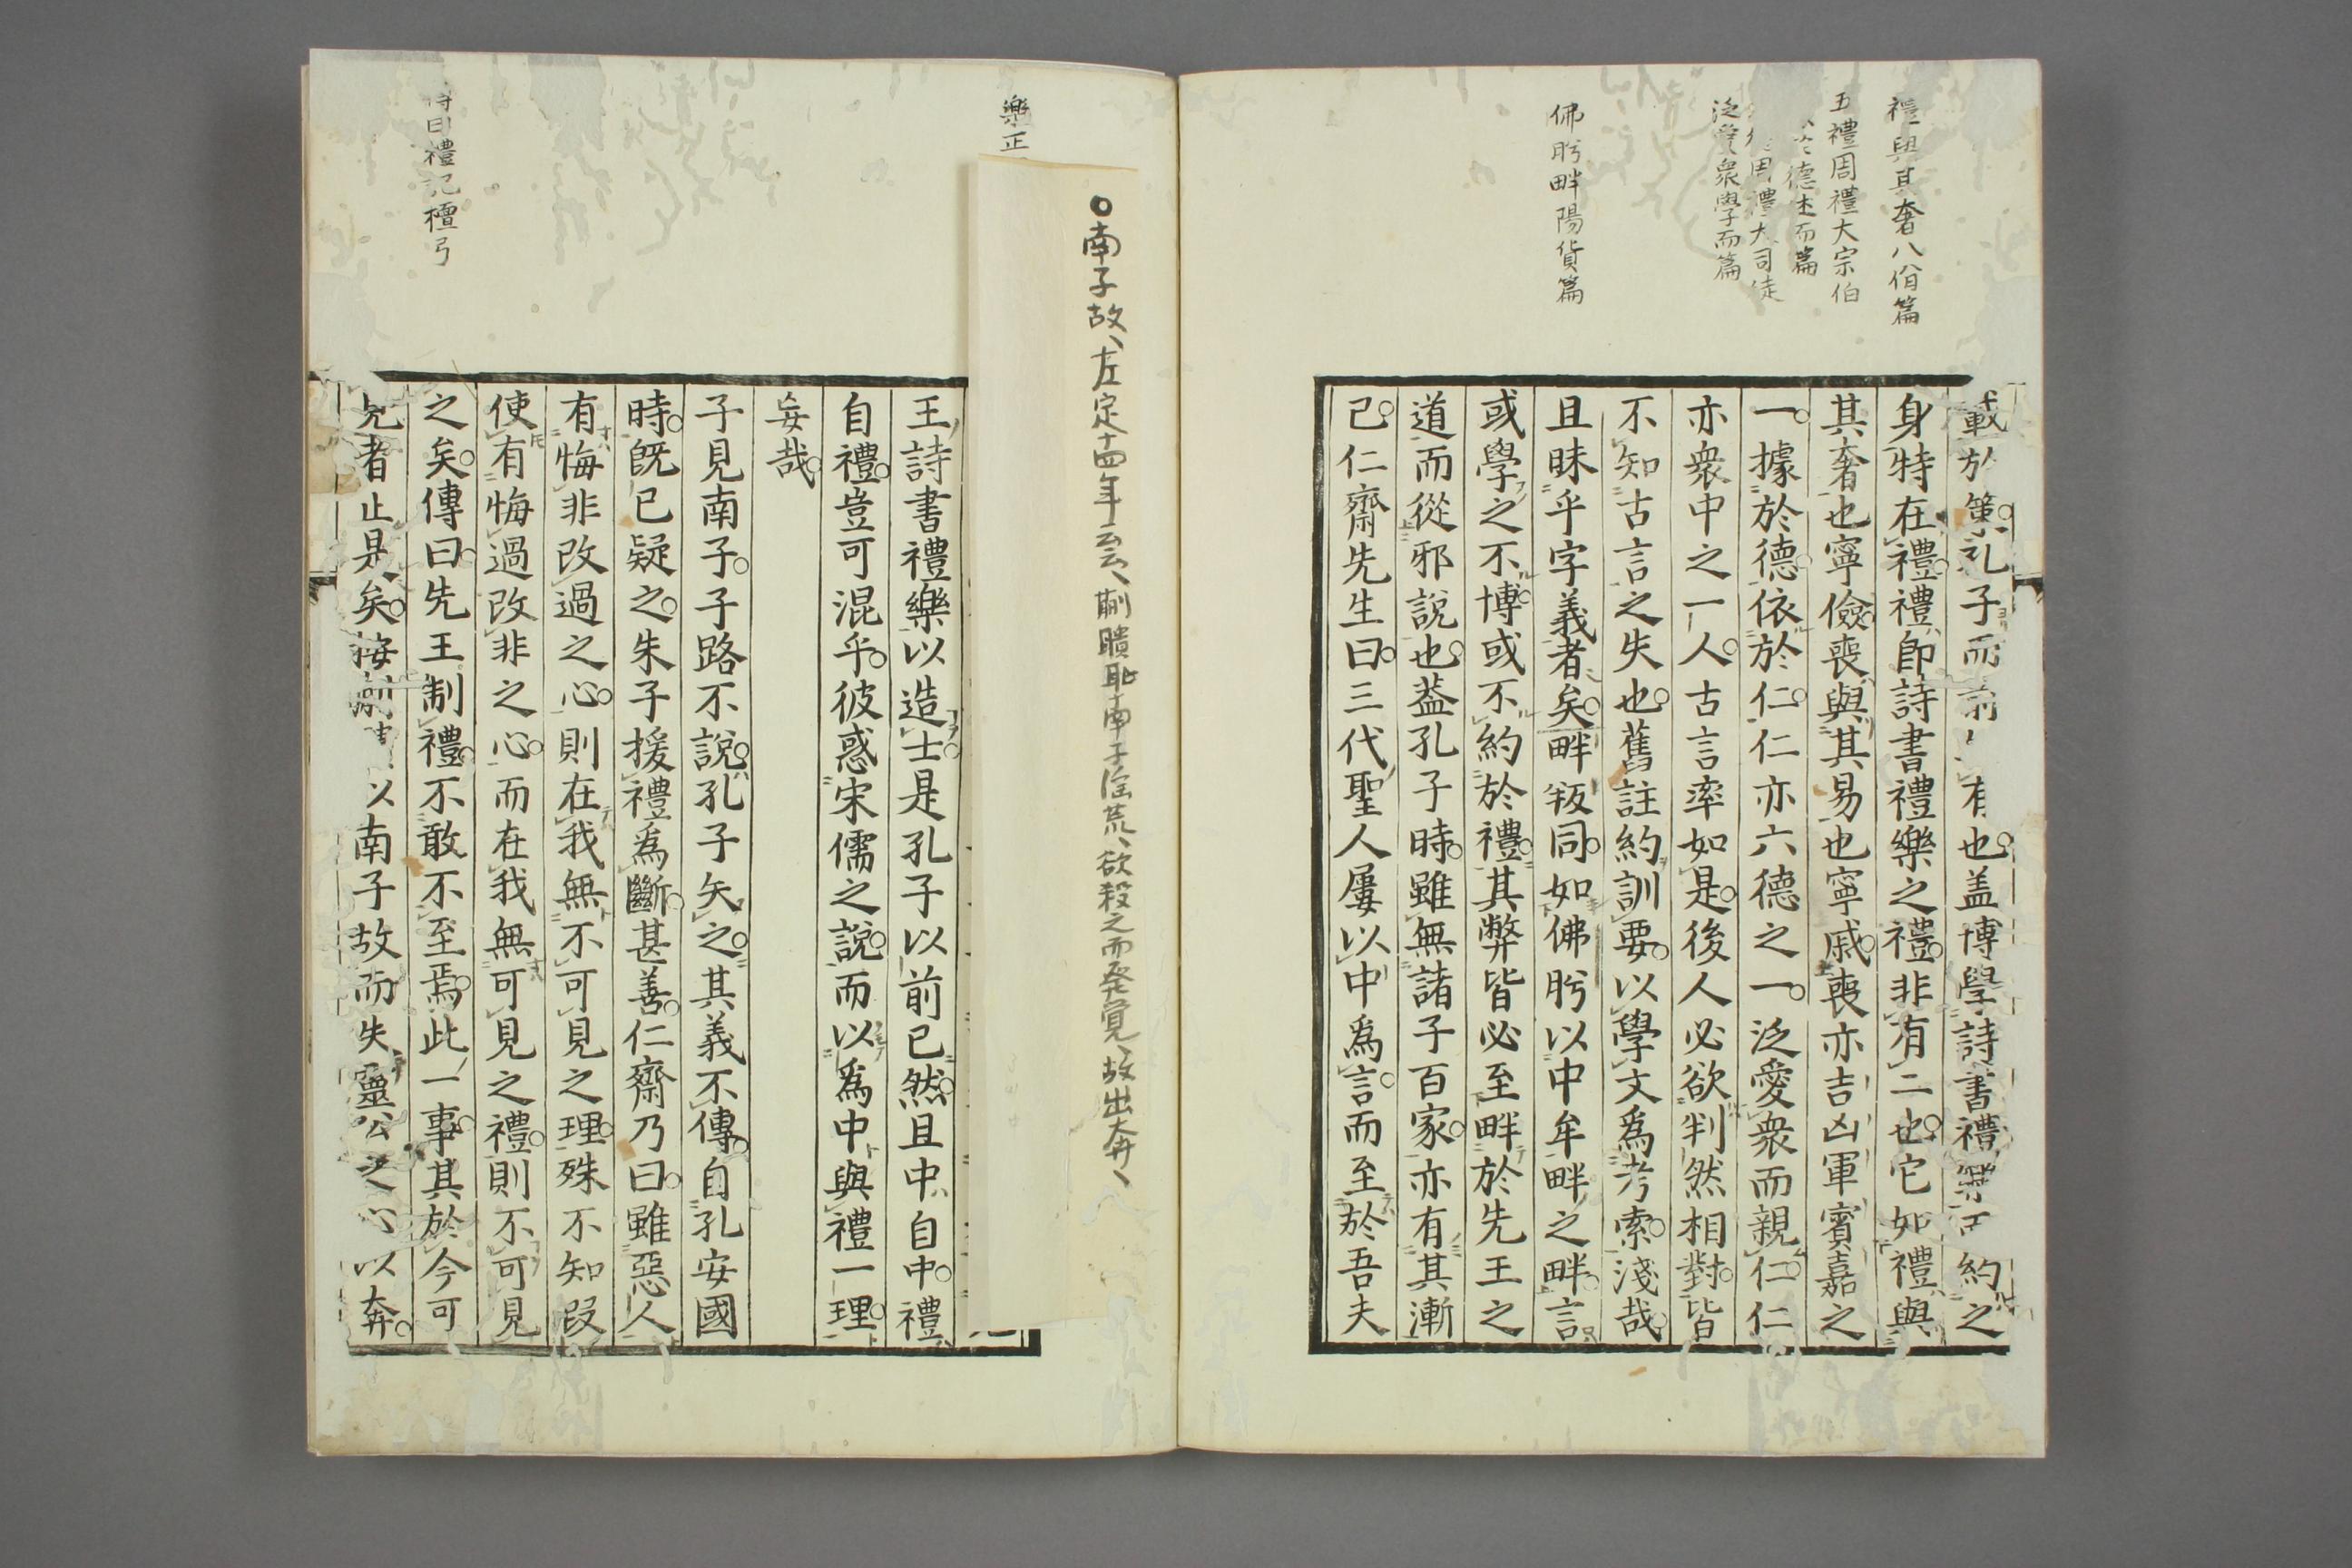 禮與其奢八佾篇
五禮周禮大宗伯
於德述而篇
周禮大司徒
泛愛衆學而篇
佛肹畔陽貨篇
載於策孔子而前有也盖博學詩書禮樂約之
身特在禮禮即詩書禮樂之禮非有二也它如禮與
其奢也寧儉喪與其易也寧戚喪亦吉凶軍賓嘉之
一據於德依於仁仁亦六德之一泛愛衆而親仁仁
亦衆中之一人古言率如是後人必欲判然相對皆
不知古言之失也舊註約訓要以學文爲考索淺哉
且昧乎字義者矣畔叛同如佛肹以中牟畔之畔言
或學之不博或不約於禮其弊皆必至畔於先王之
道而從邪說也葢孔子時雖無諸子百家亦有其漸
已仁齋先生曰三代聖人屢以中爲言而至於吾夫
樂正
○南子故、左定十四年云云、蒯聵恥南子淫荒、欲殺之而発覚、故出奔、
王詩書禮樂以造士是孔子以前已然且中自中禮
自禮豈可混乎彼惑宋儒之說而以爲中與禮一理
妄哉
子見南子子路不說孔子矢之其義不傳自孔安國
時既已疑之朱子援禮爲斷甚善仁齋乃曰雖惡人
有悔非改過之心則在我無不可見之理殊不知叚
使有悔過改非之心而在我無可見之禮則不可見
之矣傳曰先王制禮不敢不至焉此一事其於今可
見者止是矣按蒯以南子故而失靈公之心以奔
曰禮記檀弓